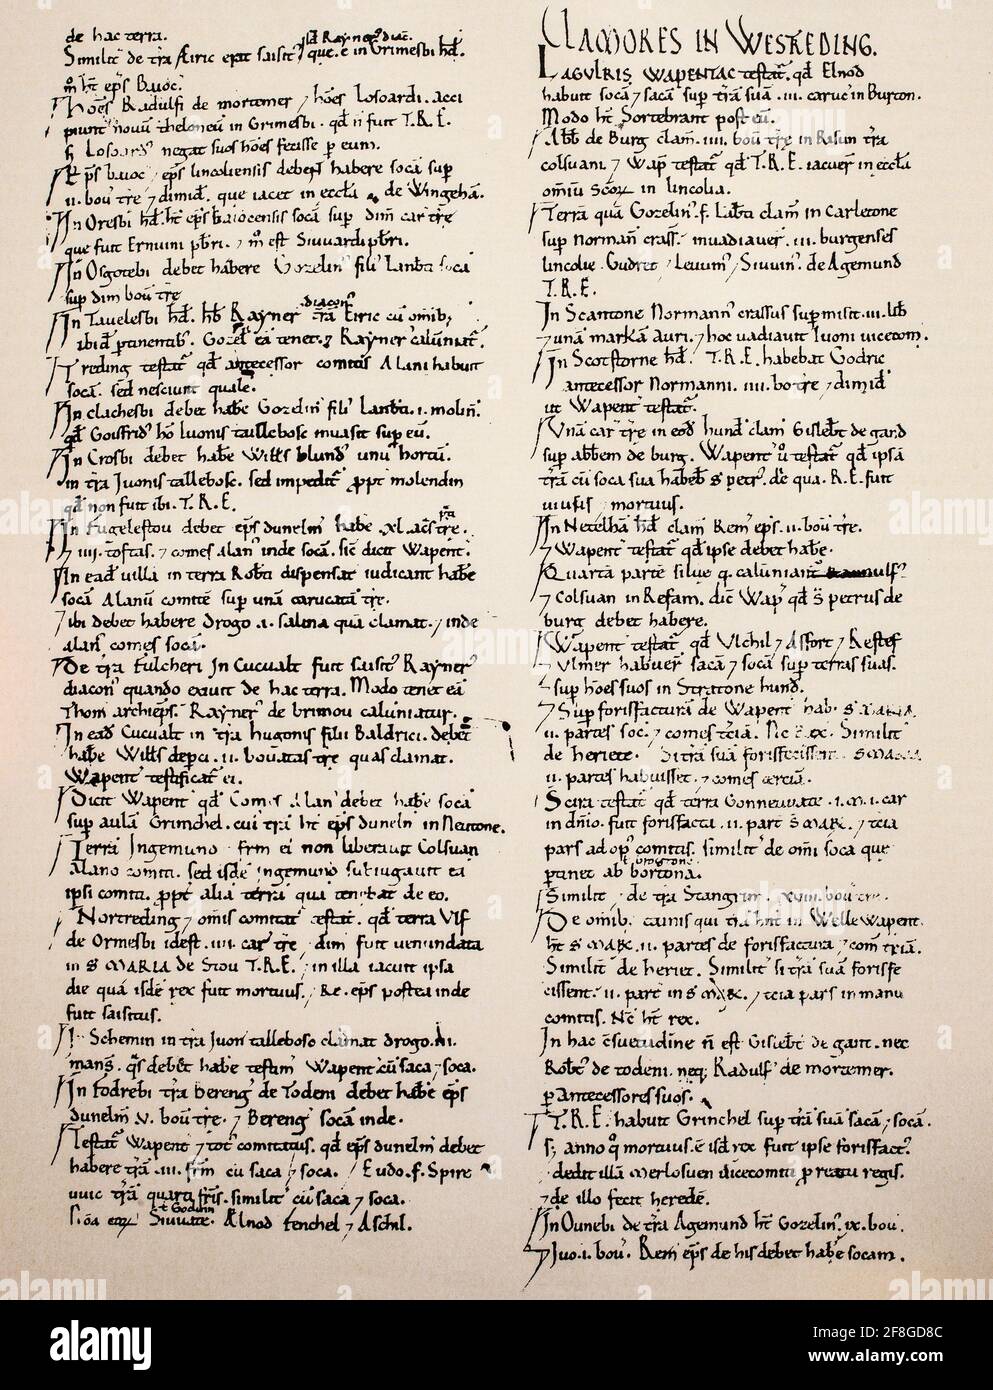 de hac terra.
Similit̃ de tr̃a Æiric erat saisit⁹ q̃ue. ẽ in Grimesbi hd̃.
m̊ ht̃ ep̃s Baioc̃.
Hões Radulfi de mortemer ⁊ hões Losoardi. acci
piunt nouũ theloneũ in Grimesbi. qd̃ ñ fuit T.R.E.
Losoard⁹ negat suos hões fecisse p̱ eum.
Ep̃s baioc̃ ⁊ ep̃s lincoliensis debent habere socã sup̱
ii. bou tr̃e ⁊ dimid̃. que iacet in eccl̃a de Wingehã.
In Oresbi hd̃. ht̃ ep̃s baiocensis socã sup̱ dim̃ car tr̃e
que fuit Ernuini pb̃ri. ⁊ m̊ est Siuuardi pb̃ri.
In Osgotebi debet habere Gozelin⁹ fili⁹ Lanb̃ti socã
sup̱ dim bou tr̃e
diacon⁹
In Tauelesbi hd̃. hb̃ Rayner tr̃ã Eiric cũ om̃ib;
ibid̃ p̱tinentib⁹. Gozel̃ eã tenet. ⁊ Rayner calũniat̃.
Treding testat̃ qd̃ antecessor comitis Alani habuit
socã. sed nesciunt quale.
In clachesbi debet hab̃e Gozelin⁹ fili⁹ Lanb̃ti. i. molin̄.
qd̃ Goisfrid⁹ hõ Iuonis taillebosc inuasit sup̱ eũ.
In Crosbi debet hab̃e Will̃s blund⁹ unũ hortũ.
in tr̃a Iuonis taillebosc. sed impedit̃ p̱pt̃ molendin
qd̃ non fuit ibi. T.R.E.
In Fugelestou debet ep̃s dunelm̃ hab̃e .xl. ac̃s tr̃e.
⁊ iiii. toftas. ⁊ comes alan⁹ inde socã. sic̃ dicit Wapent̃.
In ead̃ uilla in terra Rotb̃ti dispensat̃ iudicant hab̃e
socã Alanũ comitẽ sup̱ unã carucatã tr̃e.
⁊ ibi debet habere Drogo .i. salina quã clamat. ⁊ inde
alan⁹ comes socã.
De tr̃a Fulcheri In Cucualt fuit saisit⁹ Rayner⁹
diacon⁹ quando exiuit de hac terra. Modo tenet eã
Thom̃ archiep̃s. Rayner⁹ de brimou caluniatur.
In ead̃ Cucualt in tr̃a hugonis filii Baldrici. debet
hab̃e Will̃s de perci. ii. bouatas tr̃e quas clamat.
Wapent̃ testificat̃ ei.
Dicit Wapent̃ qd̃ Comes Alan⁹ debet hab̃e socã
sup̱ aulã Grimchel. cui⁹ tr̃ã ht̃ ep̃s dunelm̃ in Neutone.
Terrã Ingemund⁹ ⁊ fr̃m ei⁹ non liberauit Colsuan
Alano comiti. sed isdẽ ingemund⁹ subiugauit eã
ipsi comiti. p̱pt̃ alia terrã quã tenebat de eo.
Nortreding ⁊ om̃is comitat⁹ testat̃. qd̃ terra Vlf
de Ormesbi idest .iiii. car tr̃e ⁊ dim̃ fuit uenundata
in s̃ MARIA de Stou T.R.E. ⁊ in illa iacuit ipsa
die quã isdẽ rex fuit mortuus. ⁊ Re. ep̃s postea inde
fuit saisitus.
In Schemin in tr̃a Iuon⁹ taillebosc clamat drogo. iii.
mans̃. q̃s debet hab̃e testim̃ Wapent̃ cũ saca ⁊ soca.
In Fodrebi tr̃a Bereng̃ de Todeni debet hab̃e ep̃s
dunelm̃ v. bou tr̃e. ⁊ Bereng̃ socã inde.
Testat̃ Wapent̃ ⁊ tot⁹ comitatus. qd̃ ep̃s dunelm̃ debet
habere tr̃ã .iii. fr̃m cũ saca ⁊ soca. ⁊ Eudo .f. Spire
uuic tr̃ã quarti fr̃is. similit̃ cũ saca ⁊ soca.
Siuuate. Ælnod Fenchel ⁊ Aschil.
CLAMORES IN WESTREDING.
LAGULRIS WAPENTAC testat̃. qd̃ Elnod
habuit socã ⁊ sacã sup̱ tr̃ã suã .iii. caruc̃ in Burton.
Modo ht̃ Sortebrant post eũ.
Abb̃ de Burg clam̃. iiii. bou tr̃e in Risun tr̃a
colsuani. ⁊ Wap̃ testat̃ qd̃ T.R.E. iacuer̃ in eccl̃a
om̃iũ scõꝝ in lincolia.
Terrã quã Gozelin⁹ .f. Lãb̃ti clam̃ in Carletone
sup̱ Norman̄ crass̃. inuadiauer̃. iii. burgenses
lincolie. Gudret ⁊ Leuuin⁹ ⁊ Siuuin⁹. de Agemund
T.R.E.
In Scantone Normann⁹ crassus sup̱misit .iii. lib̃
⁊ unã markã auri. ⁊ hoc uadiauit Iuoni uicecom̃.
In Scotstorne hd̃. T.R.E. habebat Godric
antecessor Normanni. iiii. bo tr̃e ⁊ dimid̃
ut Wapent̃ testat̃.
Vnã car tr̃e in eod̃ hund̃ clam̃ Gislebt̃ de gand
sup̱ abb̃em de burg. Wapent̃ ů testat̃ qd̃ ipsã
tr̃ã cũ soca sua habeb̃ s̃ petr⁹. de qua. R.E. fuit
uiu⁹ ⁊ mortuus.
In Netelhã hd̃ clam̃ Rem̃ ep̃s. ii. bou tr̃e.
⁊ Wapent̃ testat̃ qd̃ ipse debet hab̃e.
Quartã partẽ silue q̃. calũniant̃
⁊ Colsuan in Refam. dic̃ Wap̃ qd̃ s̃ petrus de
burg debet habere.
Wapent̃ testat̃ qd̃ Vlchil ⁊ Asfort ⁊ Restef
⁊ Vlmer habuer̃ sacã ⁊ socã sup̱ terras suas.
⁊ sup̱ hões suos in Stratone hund̃.
⁊ Sup̱ forisfacturã de Wapent̃ hab̃. s̃ MARIA.
ii. partes soc̃. ⁊ comes t̃ciã. Similit̃
de heriete. Si tr̃ã suã forisfecissent. s̃ MARIA
ii. partes habuisset. ⁊ comes terciã.
Scira testat̃ qd̃ terra Gonneuuate .i. m̃. i. car
in dñio. fuit forisfacta. ii. part̃ s̃ MAR̃. ⁊ t̃cia
pars ad op⁹ comitis. Similit̃ de om̃i soca que
p̱tinet ab bortona.
Similit̃ de tr̃a Stangrim̃. xviii. bou tr̃e.
De om̃ib. tainis qui tr̃ã hñt in Welle Wapent̃.
ht̃ s̃ MAR̃. ii. partes de forisfactura ⁊ com̃ t̃ciã.
Similit̃ de heriet. Similit̃ si tr̃ã suã forisfe
cissent. ii. part̃ in s̃ MAR̃. ⁊ t̃cia pars in manu
comitis. N̄c ht̃ rex.
In hac c̃suetudine ñ est Gislebt̃ de gant. nec
Rotb̃t⁹ de todeni. neq; Radulf⁹ de mortemer.
p̱ antecessores suos.
T.R.E. habuit Grinchel sup̱ tr̃ã suã sacã ⁊ socã.
s; anno q̊ mortuus. ẽ isd̃ rex fuit ipse forisfact⁹.
⁊ dedit illã Merlosuen uicecomiti p̱ reatu regis.
⁊ de illo fecit heredẽ.
In Ounebi de tr̃a Agemund ht̃ Gozelin⁹. ix. bou.
⁊ Iuo .i. bou⁹. Rem̃ ep̃s de his debet hab̃e socam.
alamy
Image ID: 2F8GD8C
www.alamy.com